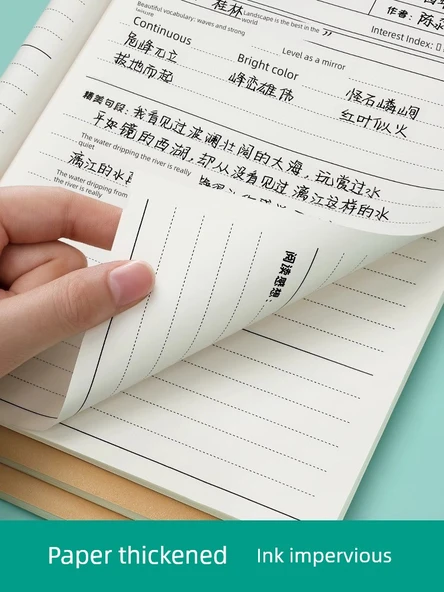 Beautiful vocabulary: waves and strong
leisure
桂林
Landscape is the best in the
world
”
作者:
Interest Index:
Continuous
Level as a mirror
危峰兀立
Bright color
怪石嶙峋
拔地而起
峰峦雄伟
红叶似火
精美句段: 我看见过波澜壮阔的大海,玩赏过水
平如镜的西湖,却从没看见过漓江这样的水
The water dripping the river is really
quiet
漓江的水
The water dripping from
the river is really
阅读感想:
Paper thickened
Ink impervious